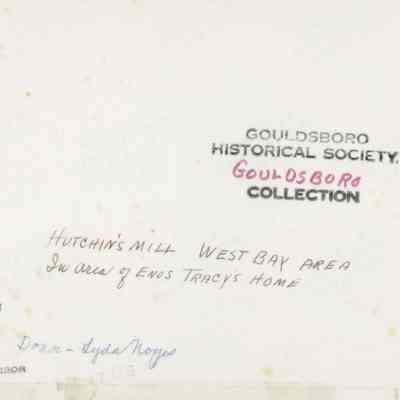 GOULDSBORO
HISTORICAL SOCIETY.
GOULDSBORO
COLLECTION
HUTCHIN'S MILL WEST BAY AREA
In area of ENOS TRACY'S HOME
Donor - Lyda Noyes